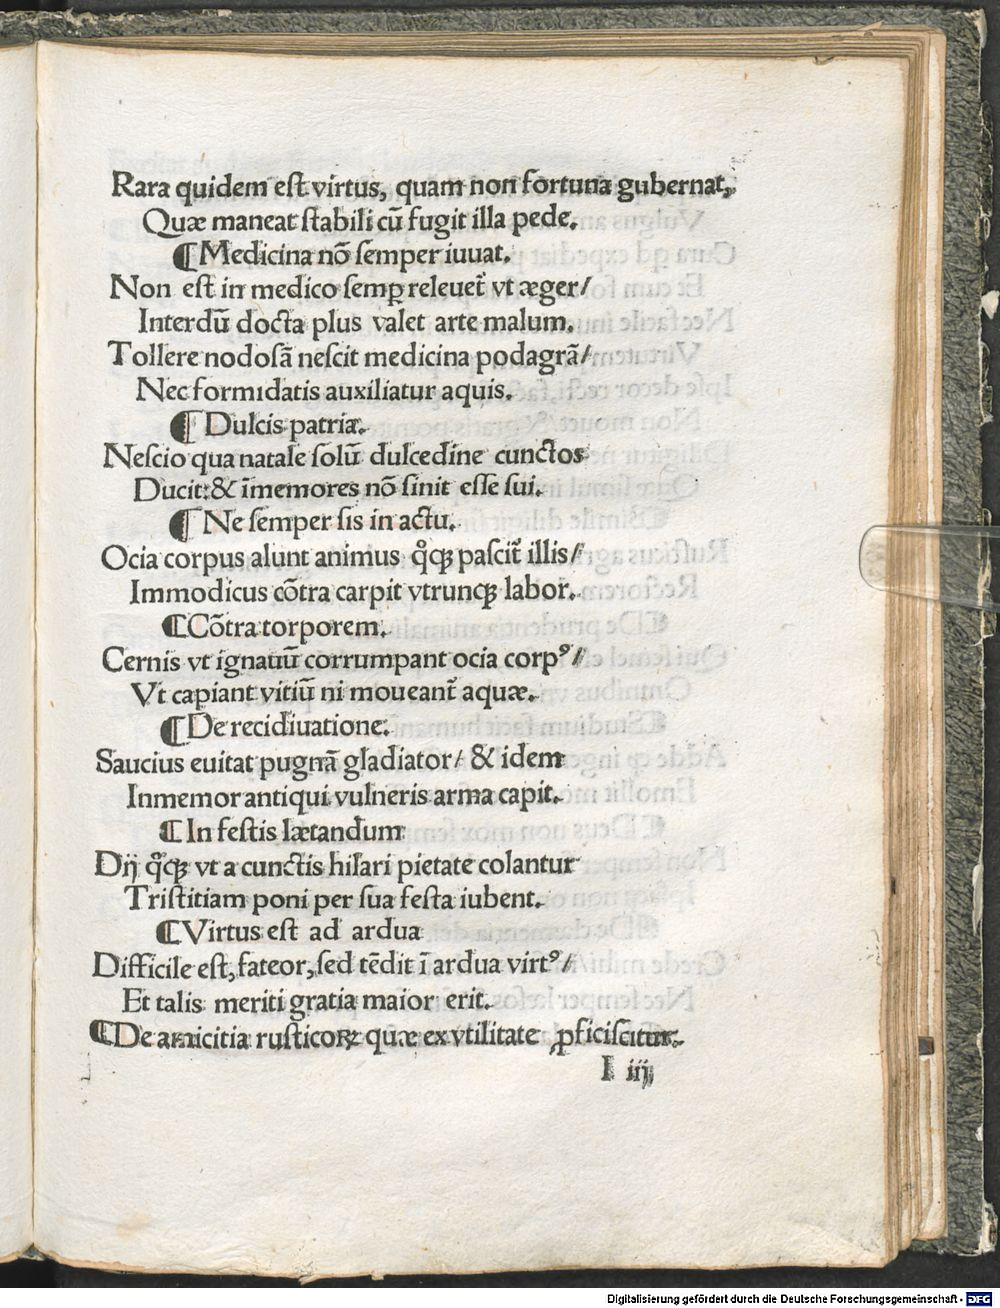 Rara quidem est virtus, quam non fortuna gubernat,
Quæ maneat stabili cū fugit illa pede.
¶Medicina nō semper iuuat.
Non est in medico semꝑ releuet᷑ vt æger/
Interdū docta plus valet arte malum.
Tollere nodosā nescit medicina podagrā/
Nec formidatis auxiliatur aquis.
¶ Dulcis patria.
Nescio qua natale solū dulcedine cunctos
Ducit:& īmemores nō sinit esse sui.
¶ Ne semper sis in actu.
Ocia corpus alunt animus qͦqꝫ pascit᷑ illis/
Immodicus cōtra carpit vtrunqꝫ labor.
¶Cōtra torporem.
Cernis vt ignauū corrumpant ocia corpꝰ/
Vt capiant vitiū ni moueant᷑ aquæ.
¶De recidiuatione.
Saucius euitat pugnā gladiator/ & idem
Inmemor antiqui vulneris arma capit.
¶In festis lætandum
Dij qͦqꝫ vt a cunctis hilari pietate colantur
Tristitiam poni per sua festa iubent.
¶Virtus est ad ardua
Difficile est, fateor, sed tēdit ī ardua virtꝰ/
Et talis meriti gratia maior erit.
¶De amicitia rusticoꝝ quæ ex vtilitate ꝓficiscitur.
I iij
Digitalisierung gefördert durch die Deutsche Forschungsgemeinschaft - DFG